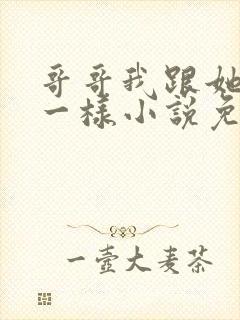 哥哥我跟她
一樣小說免
一壺大麦茶